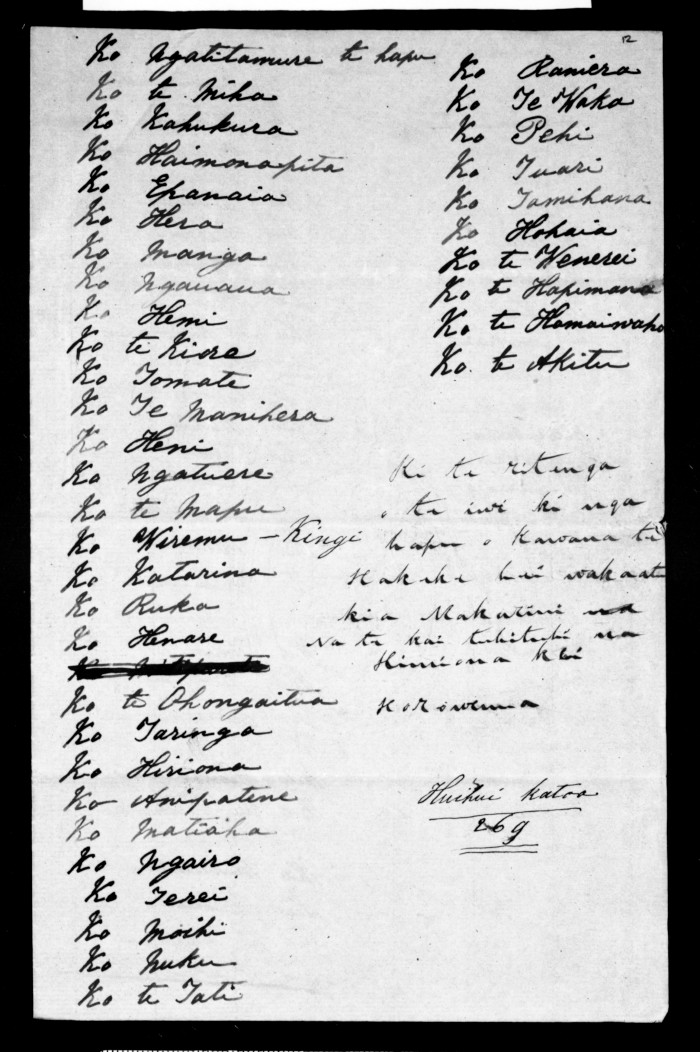 12
Ko Ngatitamure te hapu
Ko te Miha
Ko Kahukura
Ko Haimonapita
Ko Epanaia
Ko Hera
Ko Manga
Ko Ngauaua
Ko Hemi
Ko te Kiore
Ko Tomate
Ko Te Manihera
Ko Heni
Ko Ngatuere
Ko te Mapu
Ko Wiremu - Kingi
Ko Katarina
Ko Ruka
Ko Henare
Ko te Ohongaitua
Ko Taringa
Ko Hiriona
Ko Anipatene
Ko Matiaha
Ko Ngairo
Ko Terei
Ko Moihi
Ko Nuku
Ko te Tati
Ko Raniera
Ko Te Waka
Ko Pehi
Ko Tuari
Ko Tamihana
Ko Hohaia
Ko te Wenerei
Ko te Hapimana
Ko te Hamaiwaho
Ko te Akitu
Ki te ritenga
o te iwi ki nga
hapu o Kawana te
Hakeke hei wakaatu
kia Makarini
Na te kai tuhituhi na
Himiona kei
Horowenua
Huihui katoa
269